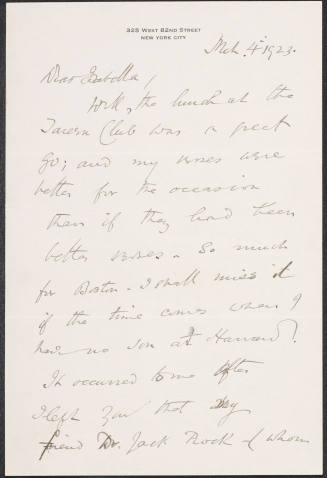 325 West 82nd Street
New York City
Mch. 4th 1923.
Dear Isabella,
Well, the lunch at the
Tavern Club was a great
go; and my verses were
better for the occasion
than if they had been
better verses. So much
for Boston. I shall miss it
if the time comes when I
have no son at Harvard.
It occurred to me after
I left you that day
friend Dr. Jack Rock (whom